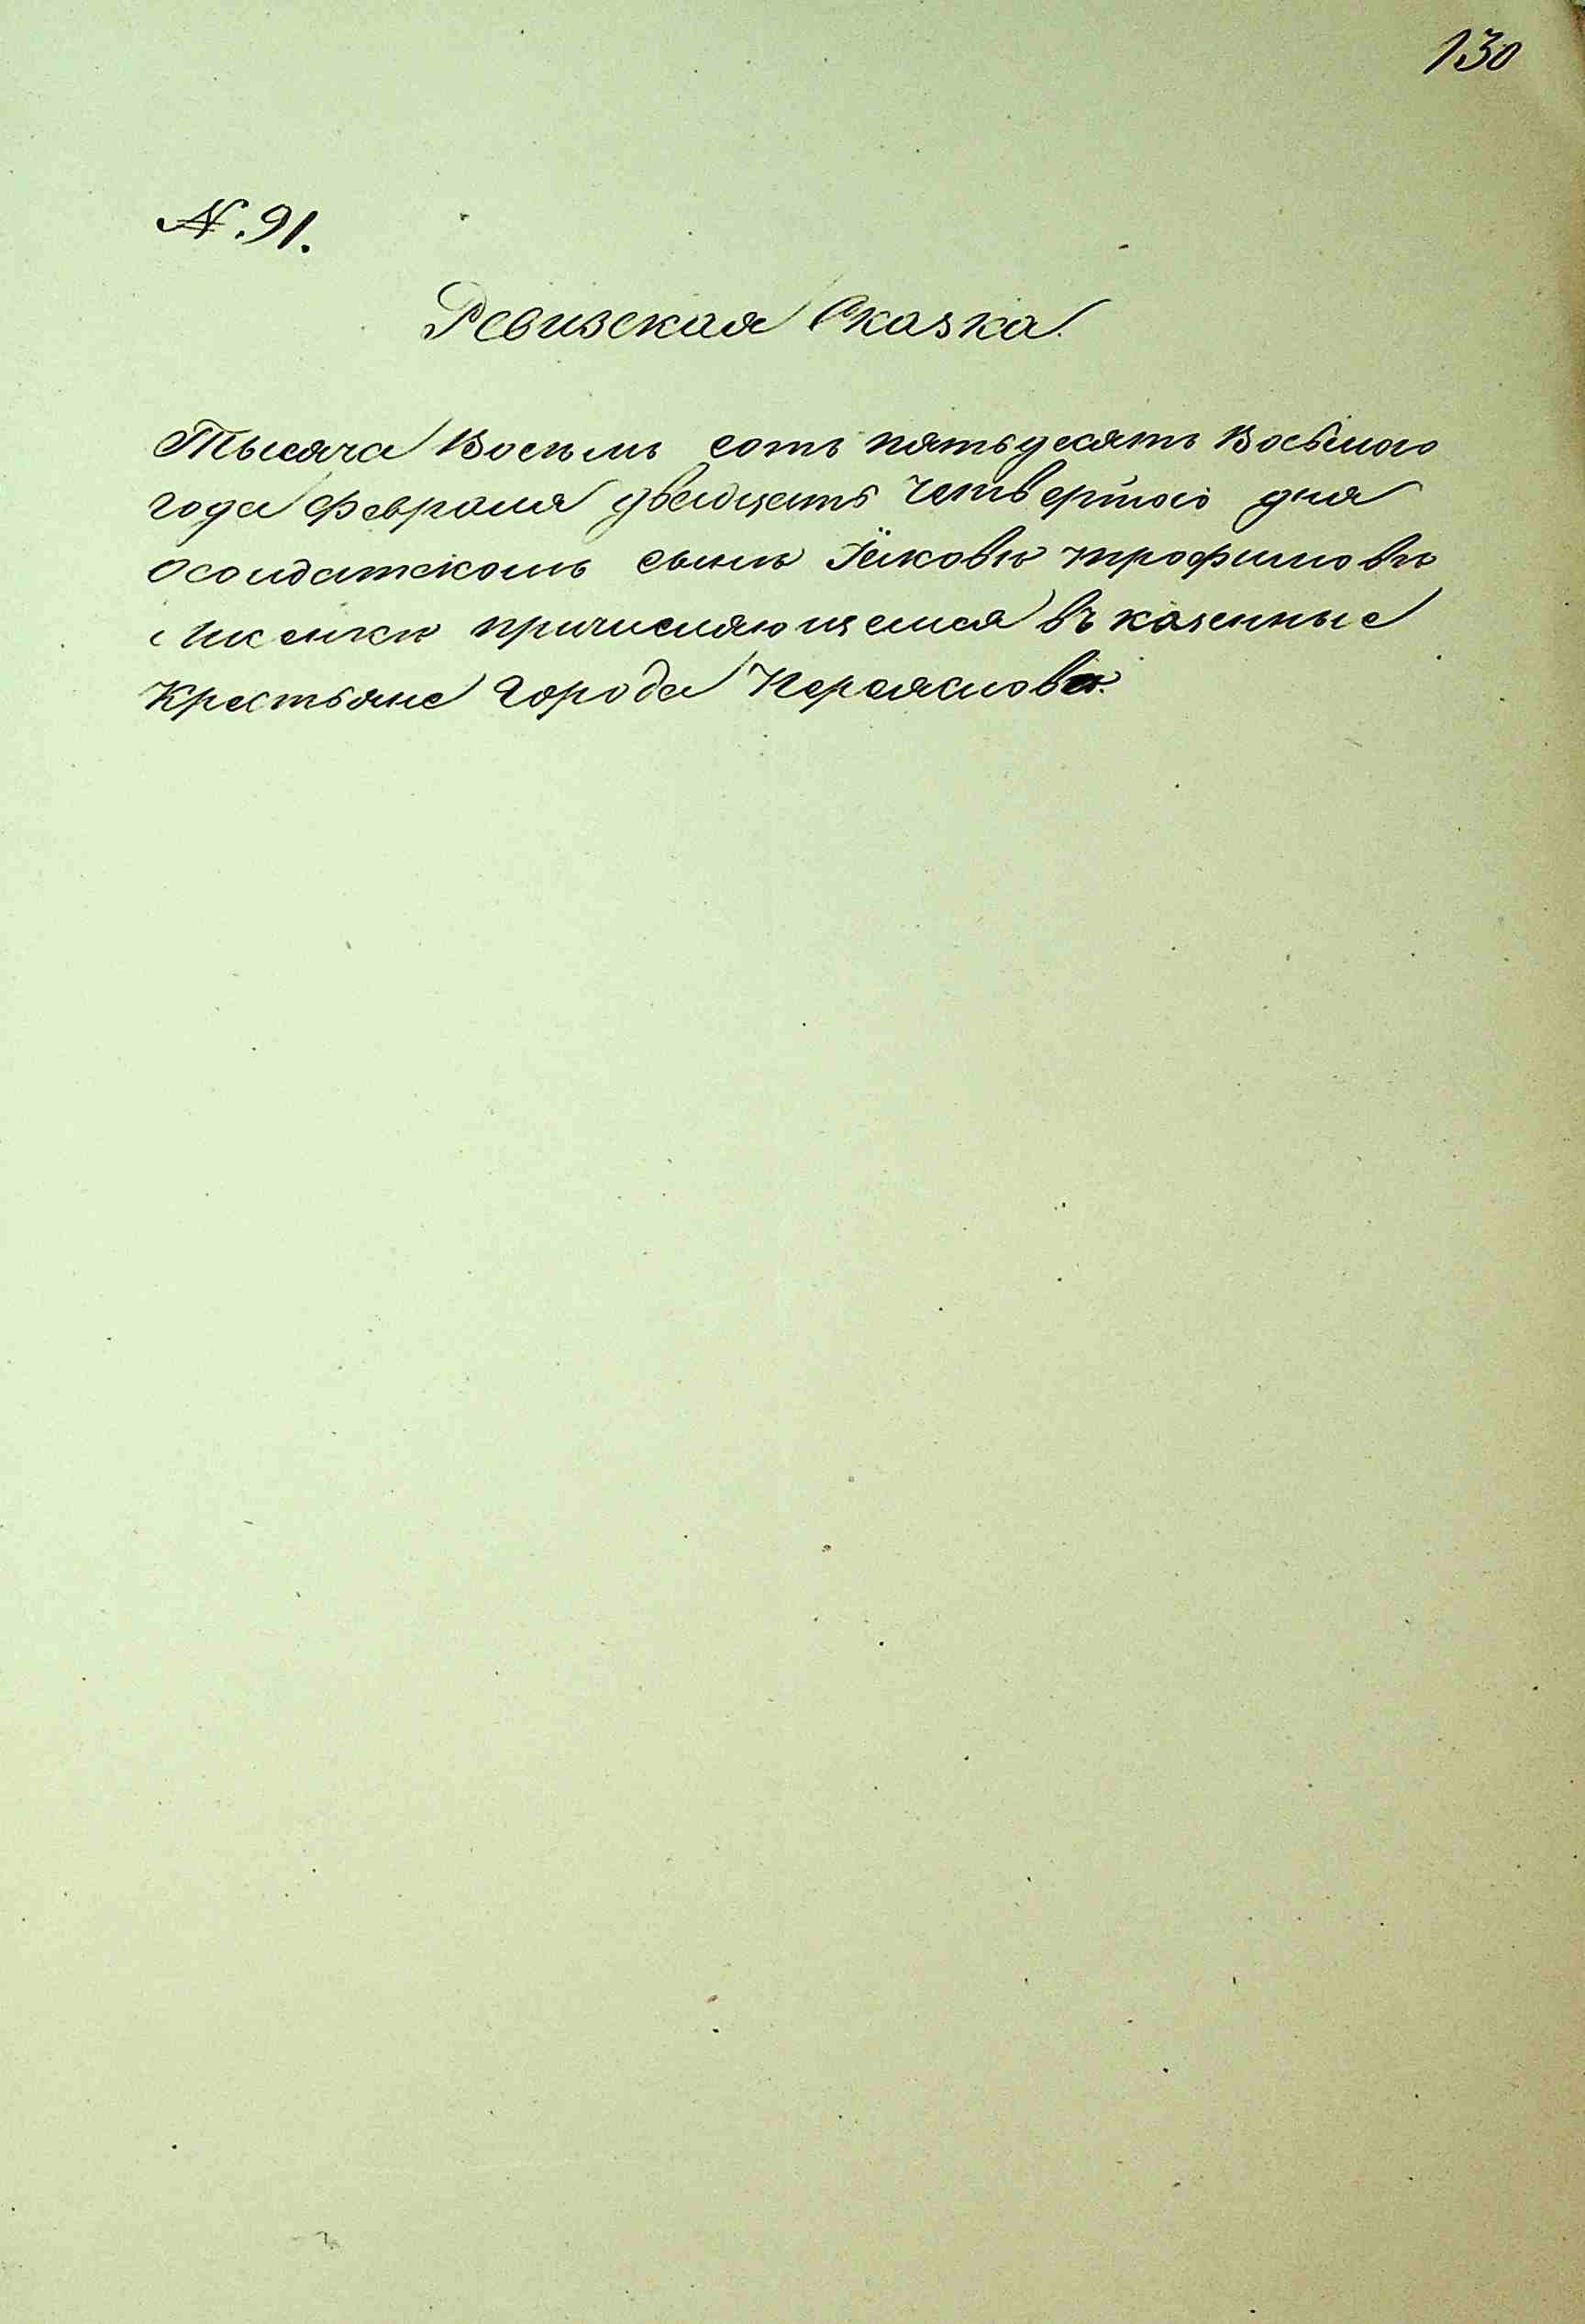 130
№. 91.
Ревизская Сказка.
Тысяча Восемь сотъ пятьдесятъ Восьмого
года февраля двадцать Четвертого дня
осолдатскомъ сынѣ Яковѣ трофимовѣ
причисляющемся въ казенные
Крестьяне города Переяслова.